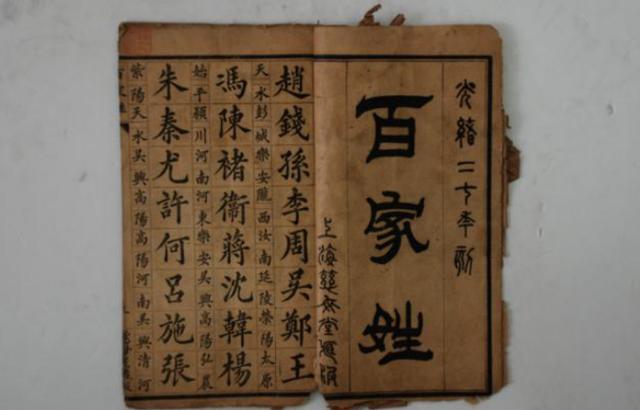 光緒二年
百家姓
上海文堂
趙錢孫李周吳鄭王
天水彭城樂安隴西汝南延陵滎陽太原
馮陳褚衛蔣沈韓楊
始平潁川河南河東樂安吳興高陽弘農
朱秦尤許何呂施張
紫陽天水吳興高陽高陽河南吳興清河